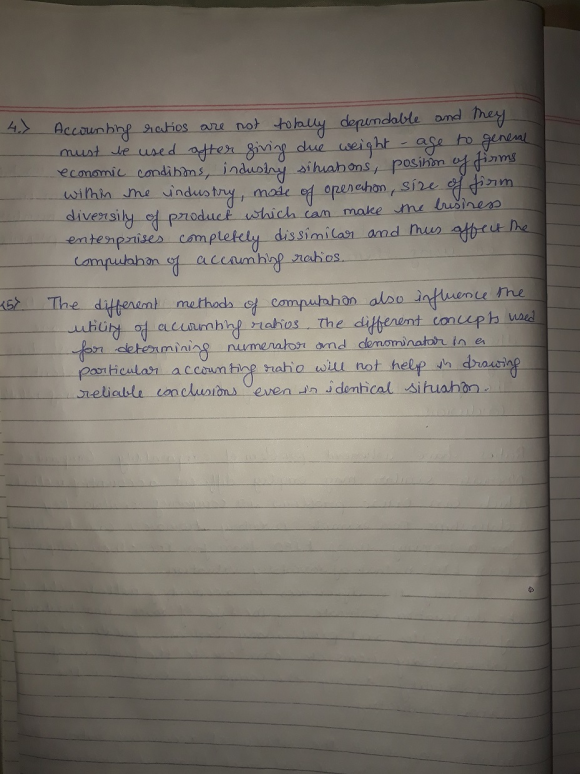 4.> Accounting ratios are not totally dependable and they
must be used after giving due weight-age to general
economic conditions, industry situations, position of firms
within the industry, mode of operation, size of firm
diversity of product which can make the business
enterprises completely dissimilar and thus affect the
computation of accounting ratios.
<5> The different methods of computation also influence the
utility of accounting ratios. The different concepts used
for determining numerator and denominator in a
particular accounting ratio will not help in drawing
reliable conclusions even in identical situation.